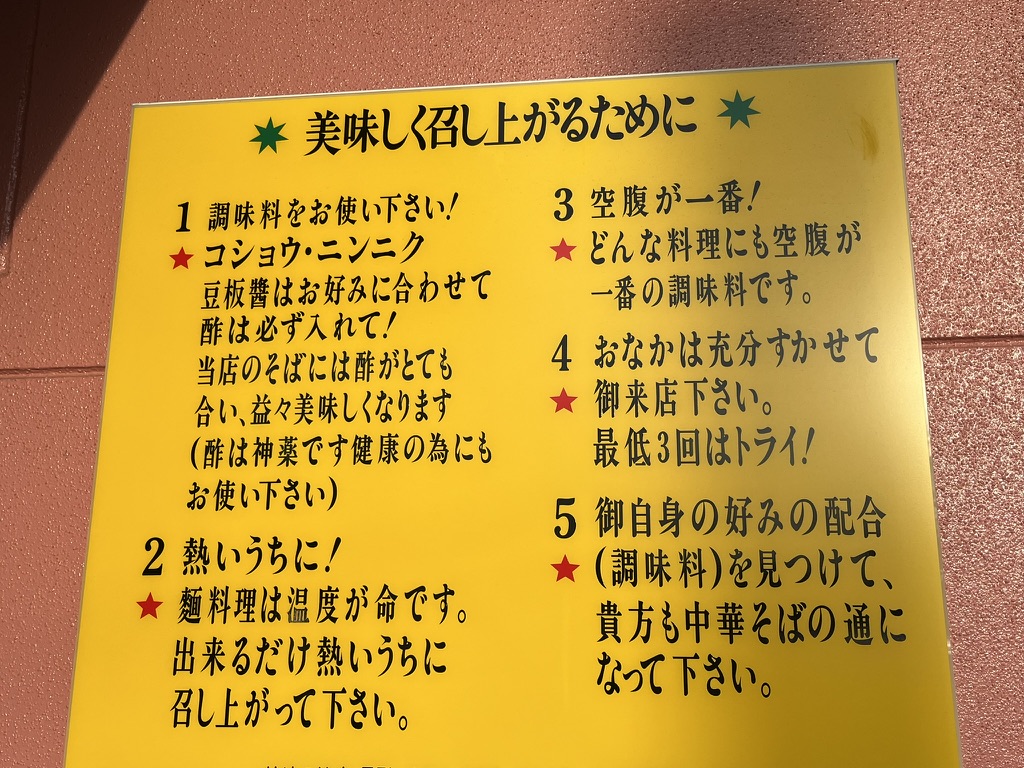 美味しく召し上がるために
1 調味料をお使い下さい!
★コショウ・ニンニク
豆板醬はお好みに合わせて
酢は必ず入れて!
当店のそばには酢がとても
合い、益々美味しくなります
(酢は神薬です健康の為にも
お使い下さい)
2 熱いうちに!
★麵料理は温度が命です。
出来るだけ熱いうちに
召し上がって下さい。
3 空腹が一番!
★どんな料理にも空腹が
一番の調味料です。
4 おなかは充分すかせて
★御来店下さい。
最低3回はトライ!
5 御自身の好みの配合
★(調味料)を見つけて、
貴方も中華そばの通に
なって下さい。